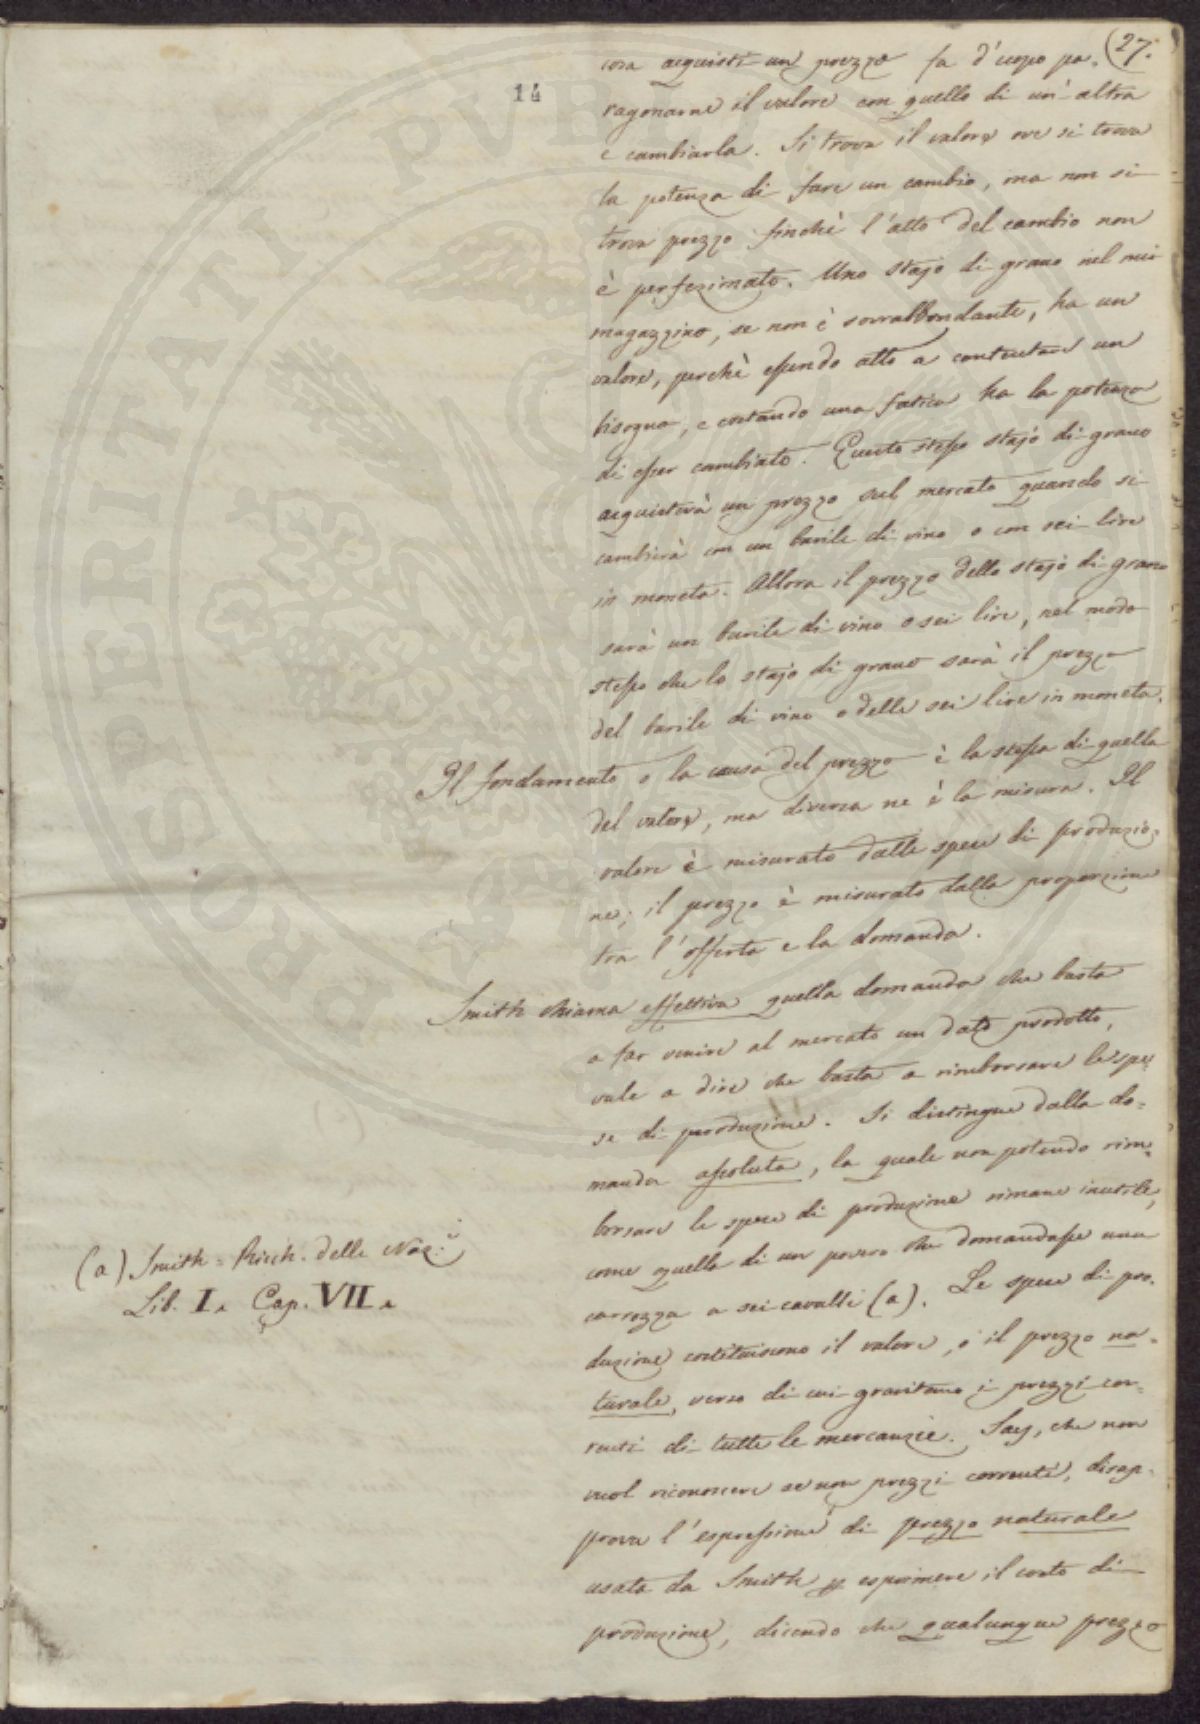 27.
14
cosa acquisti un prezzo fa d'uopo pa-
ragonarne il valore con quello di un'altra
e cambiarla. Si trova il valore ove si trova
la potenza di fare un cambio, ma non si
trova prezzo finchè l'atto del cambio non
è perfezionato. Uno stajo di grano nel mio
magazzino, se non è sovrabbondante, ha un
valore, perchè essendo atto a contentare un
bisogno, e costando una fatica ha la potenza
di esser cambiato. Questo stesso stajo di grano
acquisterà un prezzo sul mercato quando si
cambierà con un barile di vino o con sei lire
in moneta. Allora il prezzo dello stajo di grano
sarà un barile di vino o sei lire, nel modo
stesso che lo stajo di grano sarà il prezzo
del barile di vino o delle sei lire in moneta.
Il fondamento o la causa del prezzo è la stessa di quella
del valore, ma diversa ne è la misura. Il
valore è misurato dalle spese di produzio-
ne; il prezzo è misurato dalla proporzione
tra l'offerta e la domanda.
Smith chiama effettiva quella domanda che basta
a far venire al mercato un dato prodotto,
vale a dire che basta a rimborsare le spe-
se di produzione. Si distingue dalla do-
manda assoluta, la quale non potendo rim-
borsare le spese di produzione rimane inutile,
come quella di un povero che domandasse una
carrozza a sei cavalli (a). Le spese di pro-
duzione costituiscono il valore, o il prezzo na-
turale, verso di cui gravitano i prezzi cor-
renti di tutte le mercanzie. Say, che non
vuol riconoscere se non prezzi correnti, disap-
prova l'espressione di prezzo naturale
usata da Smith p esprimere il costo di
produzione, dicendo che qualunque prezzo
(a) Smith = Ricch. delle Naz:i
Lib. I. Cap. VII.
PROSPERITATI PVBLI